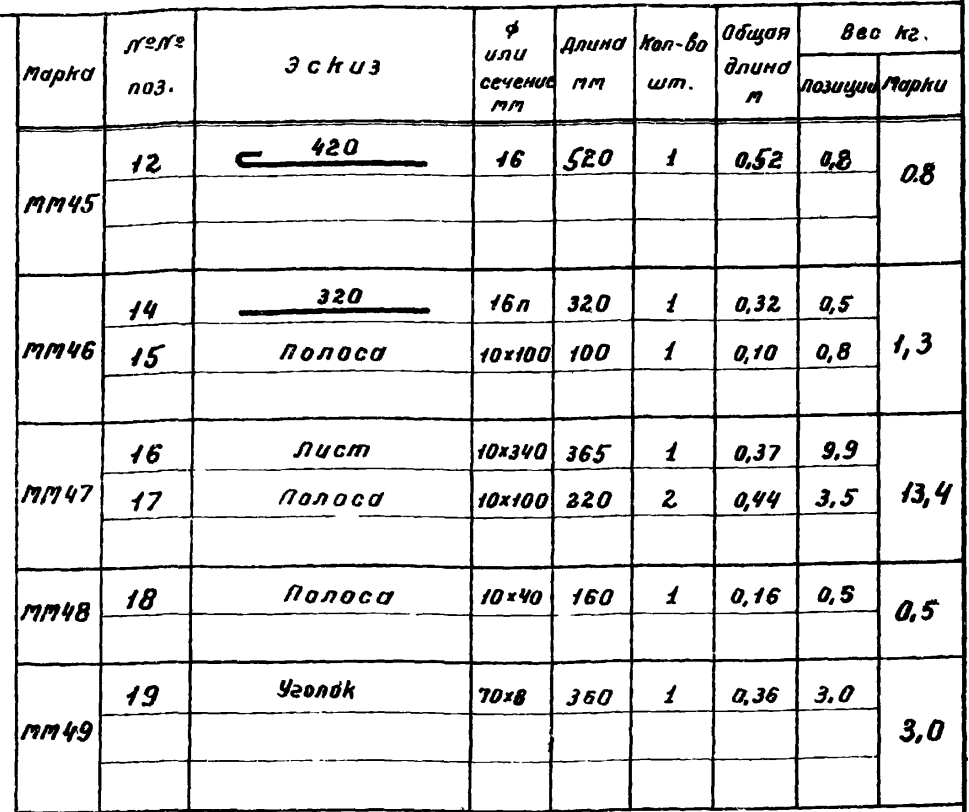 Марка №№ поз. Эскиз ф или сечение мм Длина мм Кол-во шт. Общая длина м Вес кг. позиции Марки
мм45 12 420 16 520 1 0,52 0,8 0.8
мм46 14 320 16п 320 1 0,32 0,5 1,3
15 Полоса 10х100 100 1 0,10 0,8
мм47 16 Лист 10х340 365 1 0,37 9,9 13,4
17 Полоса 10х100 220 2 0,44 3,5
мм48 18 Полоса 10х40 160 1 0,16 0,5 0,5
мм49 19 Уголок 70х8 360 1 0,36 3.0 3,0